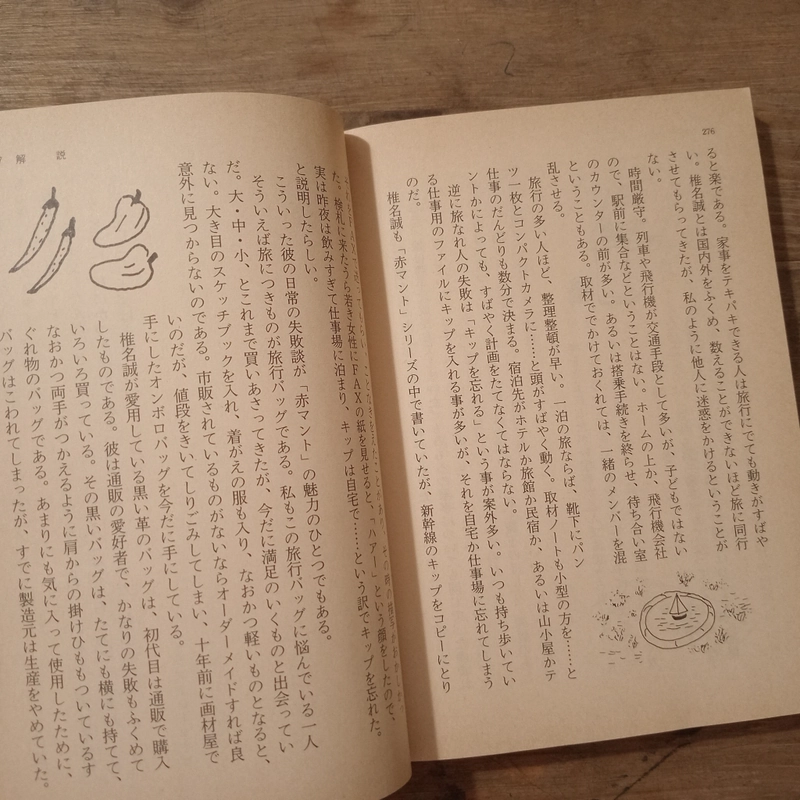 276
ると楽である。家事をテキパキできる人は旅行にでても動きがすばや
い。椎名誠とは国内外をふくめ、数えることができないほど旅に同行
させてもらってきたが、私のように他人に迷惑をかけるということが
ない。
時間厳守。列車や飛行機が交通手段として多いが、子どもではない
ので、駅前に集合などということはない。ホームの上か、飛行機会社
のカウンターの前が多い。あるいは搭乗手続きを終らせ、待ち合い室
ということもある。取材ででかけておくれては、一緒のメンバーを混
乱させる。
旅行の多い人ほど、整理整頓が早い。一泊の旅ならば、靴下にパン
ツ一枚とコンパクトカメラに……と頭がすばやく動く。取材ノートも小型の方を……と
仕事のだんどりも数分で決まる。宿泊先がホテルか旅館か民宿か、あるいは山小屋かテ
ントかによっても、すばやく計画をたてなくてはならない。
逆に旅なれ人の失敗は「キップを忘れる」という事が案外多い。いつも持ち歩いてい
る仕事用のファイルにキップを入れる事が多いが、それを自宅か仕事場に忘れてしまう
のだ。
椎名誠も「赤マント」シリーズの中で書いていたが、新幹線のキップをコピーにとり
解説
た。検札に来たうら若き女性にFAXの紙を見せると、「ハアー」という顔をしたので、
実は昨夜は飲みすぎて仕事場に泊まり、キップは自宅で……という訳でキップを忘れた。
と説明したらしい。
こういった彼の日常の失敗談が「赤マント」の魅力のひとつでもある。
そういえば旅につきものが旅行バッグである。私もこの旅行バッグに悩んでいる一人
だ。大・中・小、とこれまで買いあさってきたが、今だに満足のいくものと出会ってい
ない。大き目のスケッチブックを入れ、着がえの服も入り、なおかつ軽いものとなると、
意外に見つからないのである。市販されているものがないならオーダーメイドすれば良
いのだが、値段をきいてしりごみしてしまい、十年前に画材屋で
手にしたオンボロバッグを今だに手にしている。
椎名誠が愛用している黒い革のバッグは、初代目は通販で購入
したものである。彼は通販の愛好者で、かなりの失敗もふくめて
いろいろ買っている。その黒いバッグは、たてにも横にも持てて、
なおかつ両手がつかえるように肩からの掛けひももついているす
ぐれ物のバッグである。あまりにも気に入って使用したために、
バッグはこわれてしまったが、すでに製造元は生産をやめていた。